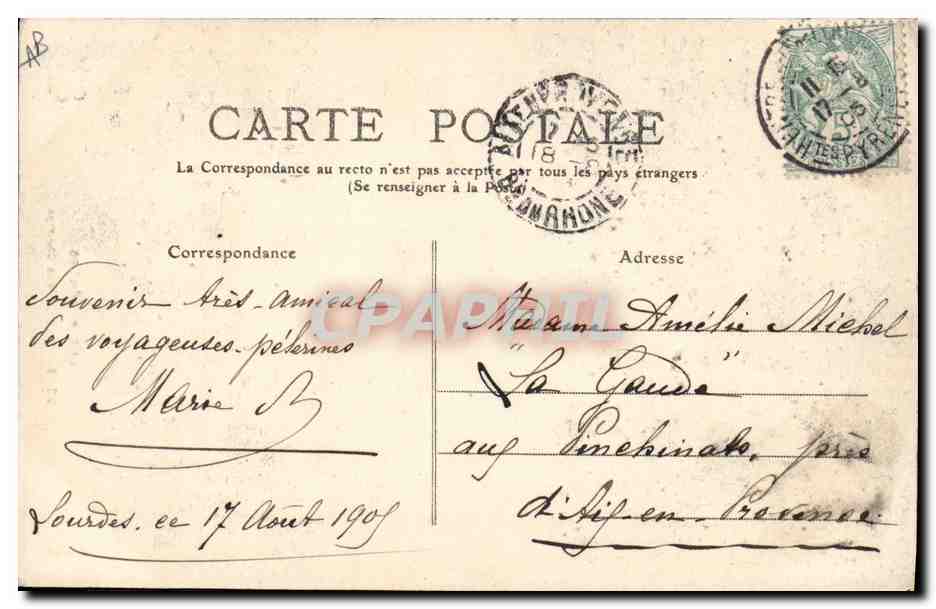 AB
CARTE POSTALE
La Correspondance au recto n'est pas acceptée par tous les pays étrangers
(Se renseigner à la Poste)
Correspondance
Adresse
Souvenir très-amical
des voyageuses-pélerines
Marie B
Lourdes. ce 17 Août 1905
Madame Amélie Michel
"La Gaude"
aux Pinchinats, près
d'Aix-en-Provence.
CPARAMA
18
DU RHONE
HTES PYRENEES
11
17
5